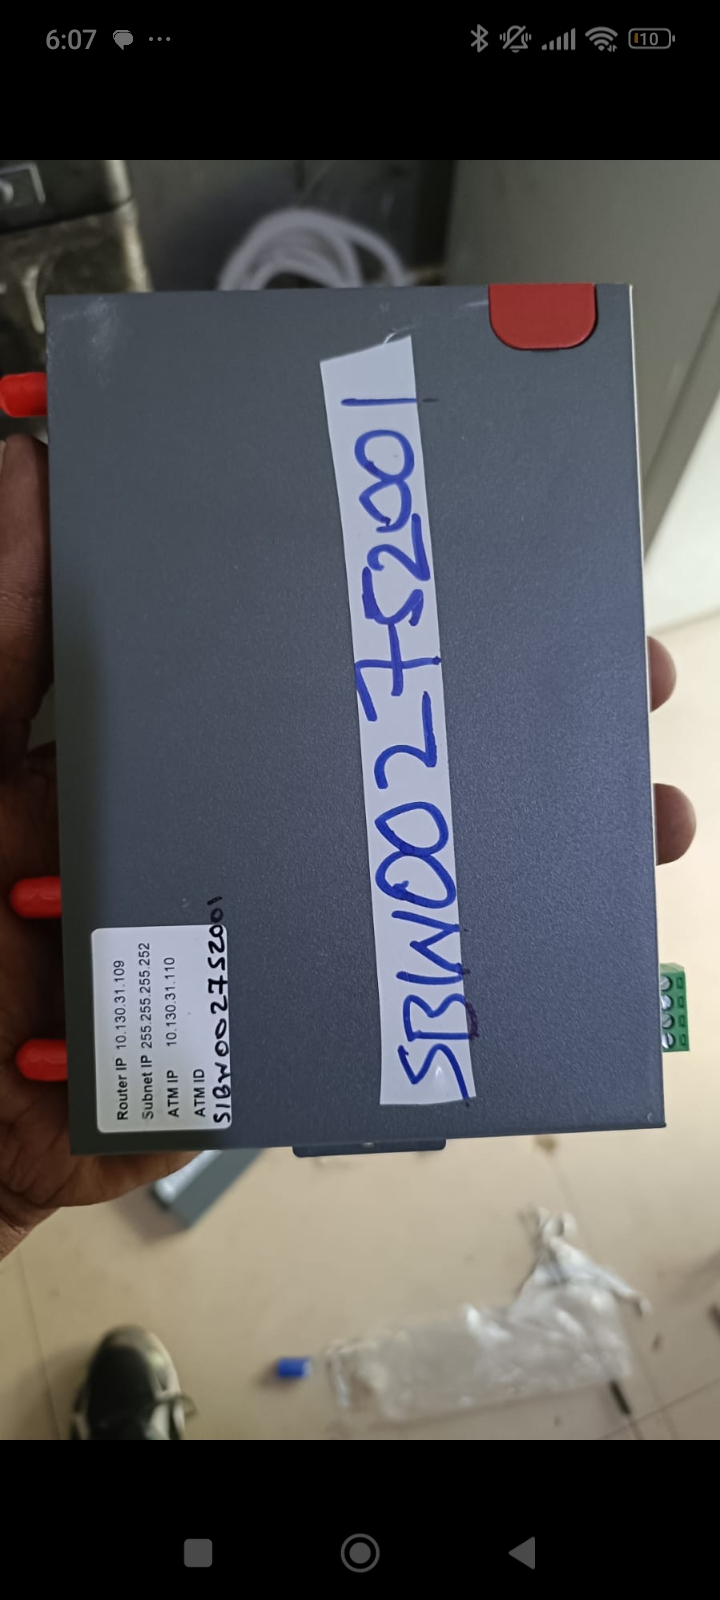 6:07
10
SBW0027S2001
Router IP 10.130.31.109
Subnet IP 255.255.255.252
ATM IP 10.130.31.110
ATM ID
S1BW0027S2001